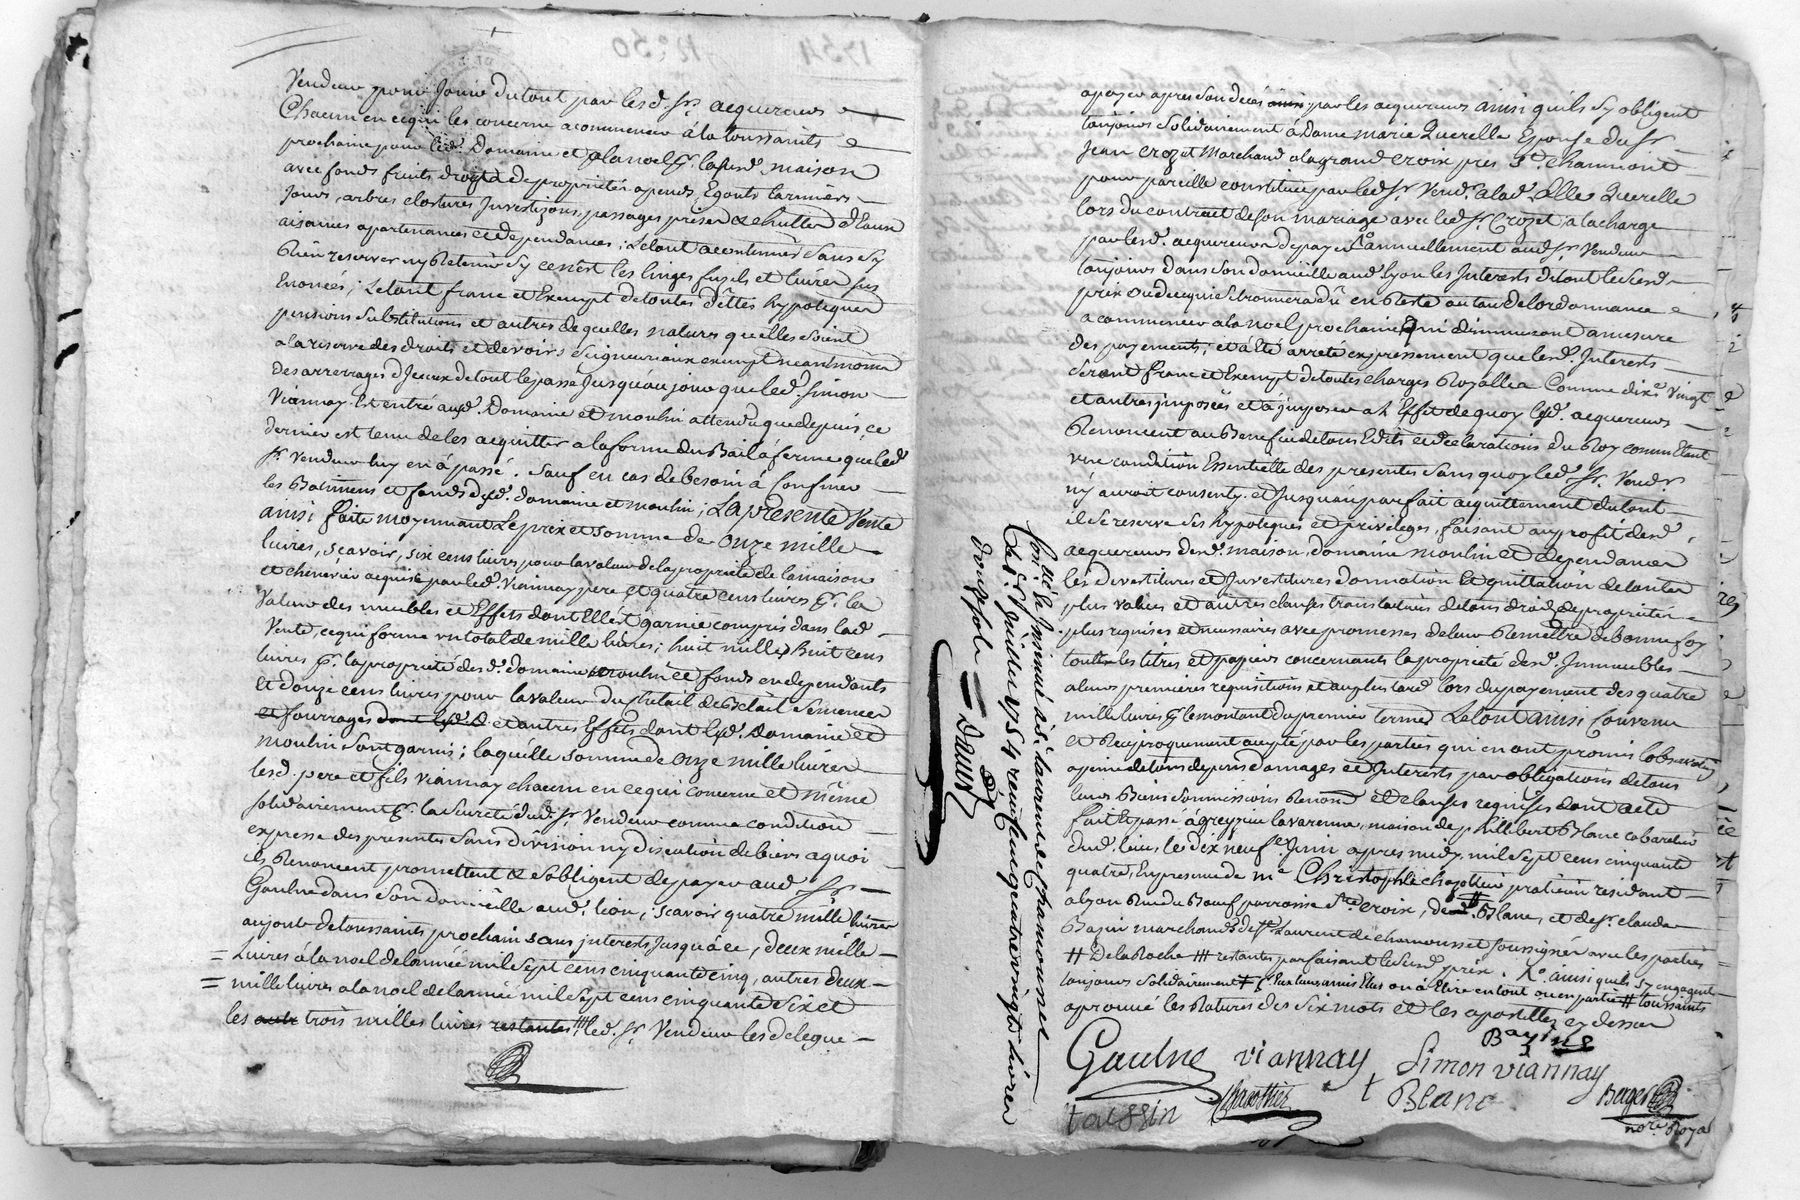 Vendeur pour Jouir du tout par lesd. srs. acquereurs
Chacun en cequi les concerne a commencer à la toussaints
prochaine pour led. Domaine et a la noel pr. lasusd. maison
avec fonds fruits droits de proprietés apends, Egouts larmiers
Jours, arbres clostures Investizons, passages prises & chutte d'Eaux
aisances apartenances et dependances; Le tout a contenus sans sy
Rien reserver ny Retenir sy cen'est les linges fusils et cuirer sus
Enoncés; Le tout franc et Exempt de toutes dêttes hypoteques
pensions substitutions et autres de quelles natures quelles soient
a la reserve des droits et devoirs seigneuriaux exempt neantmoins
des arrerages d'Jceux detout le passé Jusquau jour que led. simon
Viannay Est entré auxd. Domaine et moulin attendu que depuis ce
dernier est tenu de les acquitter a la forme du Bail à ferme que led
sr. vendeur luy en à passé. Sauf en cas de besoin à confiner
les Batimens et fonds desd. domaine et moulin; La presente Vente
ainsi faite moyennant Le prix et somme de Onze mille
livres, scavoir, six cens livres pour la valeur de la proprieté de la maison
et chenevier acquise par led. Viannay pere et quatre cens livres pr. la
Valeur des meubles et Effets dont Elle est garnie compris dans lad
Vente, ce qui forme un total de mille livres; huit milles huit cens
livres pr. la proprieté desd. domaine moulin et fonds en dependants
Et douze cens livres pour la valeur du bétail semences
et fourrages dont lesd. D et autres Effets dont lesd. Domaine et
moulin sont garnis; laquelle somme de Onze mille livres
lesd. pere et fils viannay chacun en ce qui concerne et même
solidairement pr. la sureté dud. sr. Vendeur comme condition
expresse des presentes sans division ny discution de biens a quoi
ils Renoncent promettent & sobligent de payer aud. sr.
Gaulne dans son domicille aud. lion, scavoir quatre mille livres
au jour de toussaints prochain sans interests Jusqu'à ce, deux mille
Livres à la noel de lannée mil sept cens cinquante cinq, autres deux
mille livres a la noel de lannée mil sept cens cinquante six et
les autr trois milles livres restantes led. sr. Vendeur les delegue
apayer apres son decés ainsi par les acquereurs ainsi quils sy obligent
toujours solidairement à Dame marie Querelle Epouse du sr.
Jean Crozet Marchand a la grand croix pres St. Chaumont
pour pareille constituée par led. sr. Vendr. a lad. Dlle Querelle
lors du contract de son mariage avec led. sr. Crozet a la charge
par lesd. acquereurs de payer annuellement aud. sr. Vendeur
toujours dans son domicille aud. lyon les Interests de tout le susd
prix ou de ce qui se trouvera dû en Reste au tau de lordonnance
a commencer a la noel prochaine qui diminueront a mesure
des payements; et a Eté arreté expressement que lesd. Interests
seront francs et Exempt de toutes charges Royalles Comme dixe Vingt
et autres imposées et à jmposer a l'Effet de quoy lesd. acquereurs
Renoncent au Benefice de tous Edits et declarations du Roy comme Etant
une condition Essentielle des presentes sans quoy led. sr. Vendr.
ny auroit consenty. et Jusqu'au parfait acquittement du tout
il se reserve ses hypoteques et privileges, faisant au profit desd.
acquereurs desd. maison, domaine moulin et dependances
les devestitures et Juvestitures donnation et quittation de toutes
plus values et autres clauses translatives de tous droits de proprieté
plus requises et necessaires avec promesses de leur Remettre de bonne foy
touttes les titres et papiers concernants la proprieté desd. Immeubles
a leurs premieres requisitions et au plus tard lors du payement des quatre
mille livres pr. le montant du premier terme; Le tout ainsi Convenu
et Reciproquement accepté par les parties qui en ont promis lobservation
a peine de tous depens damages et Interests par obligations de tous
leurs Biens soumissions Renond. et clauses requises dont acte
fait et passé a grezieu lavarenne, maison de phillibert Blanc cabaretier
dud. lieu, le dix neufe Juin apres midy, mil sept cens cinquante
quatre, En presence de me. Christophle chazottier praticien residant
a lyon Rue du Bœuf parroisse Ste. croix, dud. sr. Blanc, et de sr. claude
Bazin marchand de St. Laurent de chamousset soussignés avec les parties
# De la Roche # restantes parfaisant le susd. prix. Re. ainsi quils sy engagent
toujours solidairement # ou à Elire en tout ou en partie # toussaints
aprouvé les Ratures des six mots et les apostilles cy dessus
Bazin
Gaulne viannay Simon viannay
Chazottier Blanc Berger
taussin nore. Royal
Coné. & Insinué à St. laurent de Chamousset
Le 1er. Juillet 1754 reçu cent quatre vingt livres
douze sols
Dauest